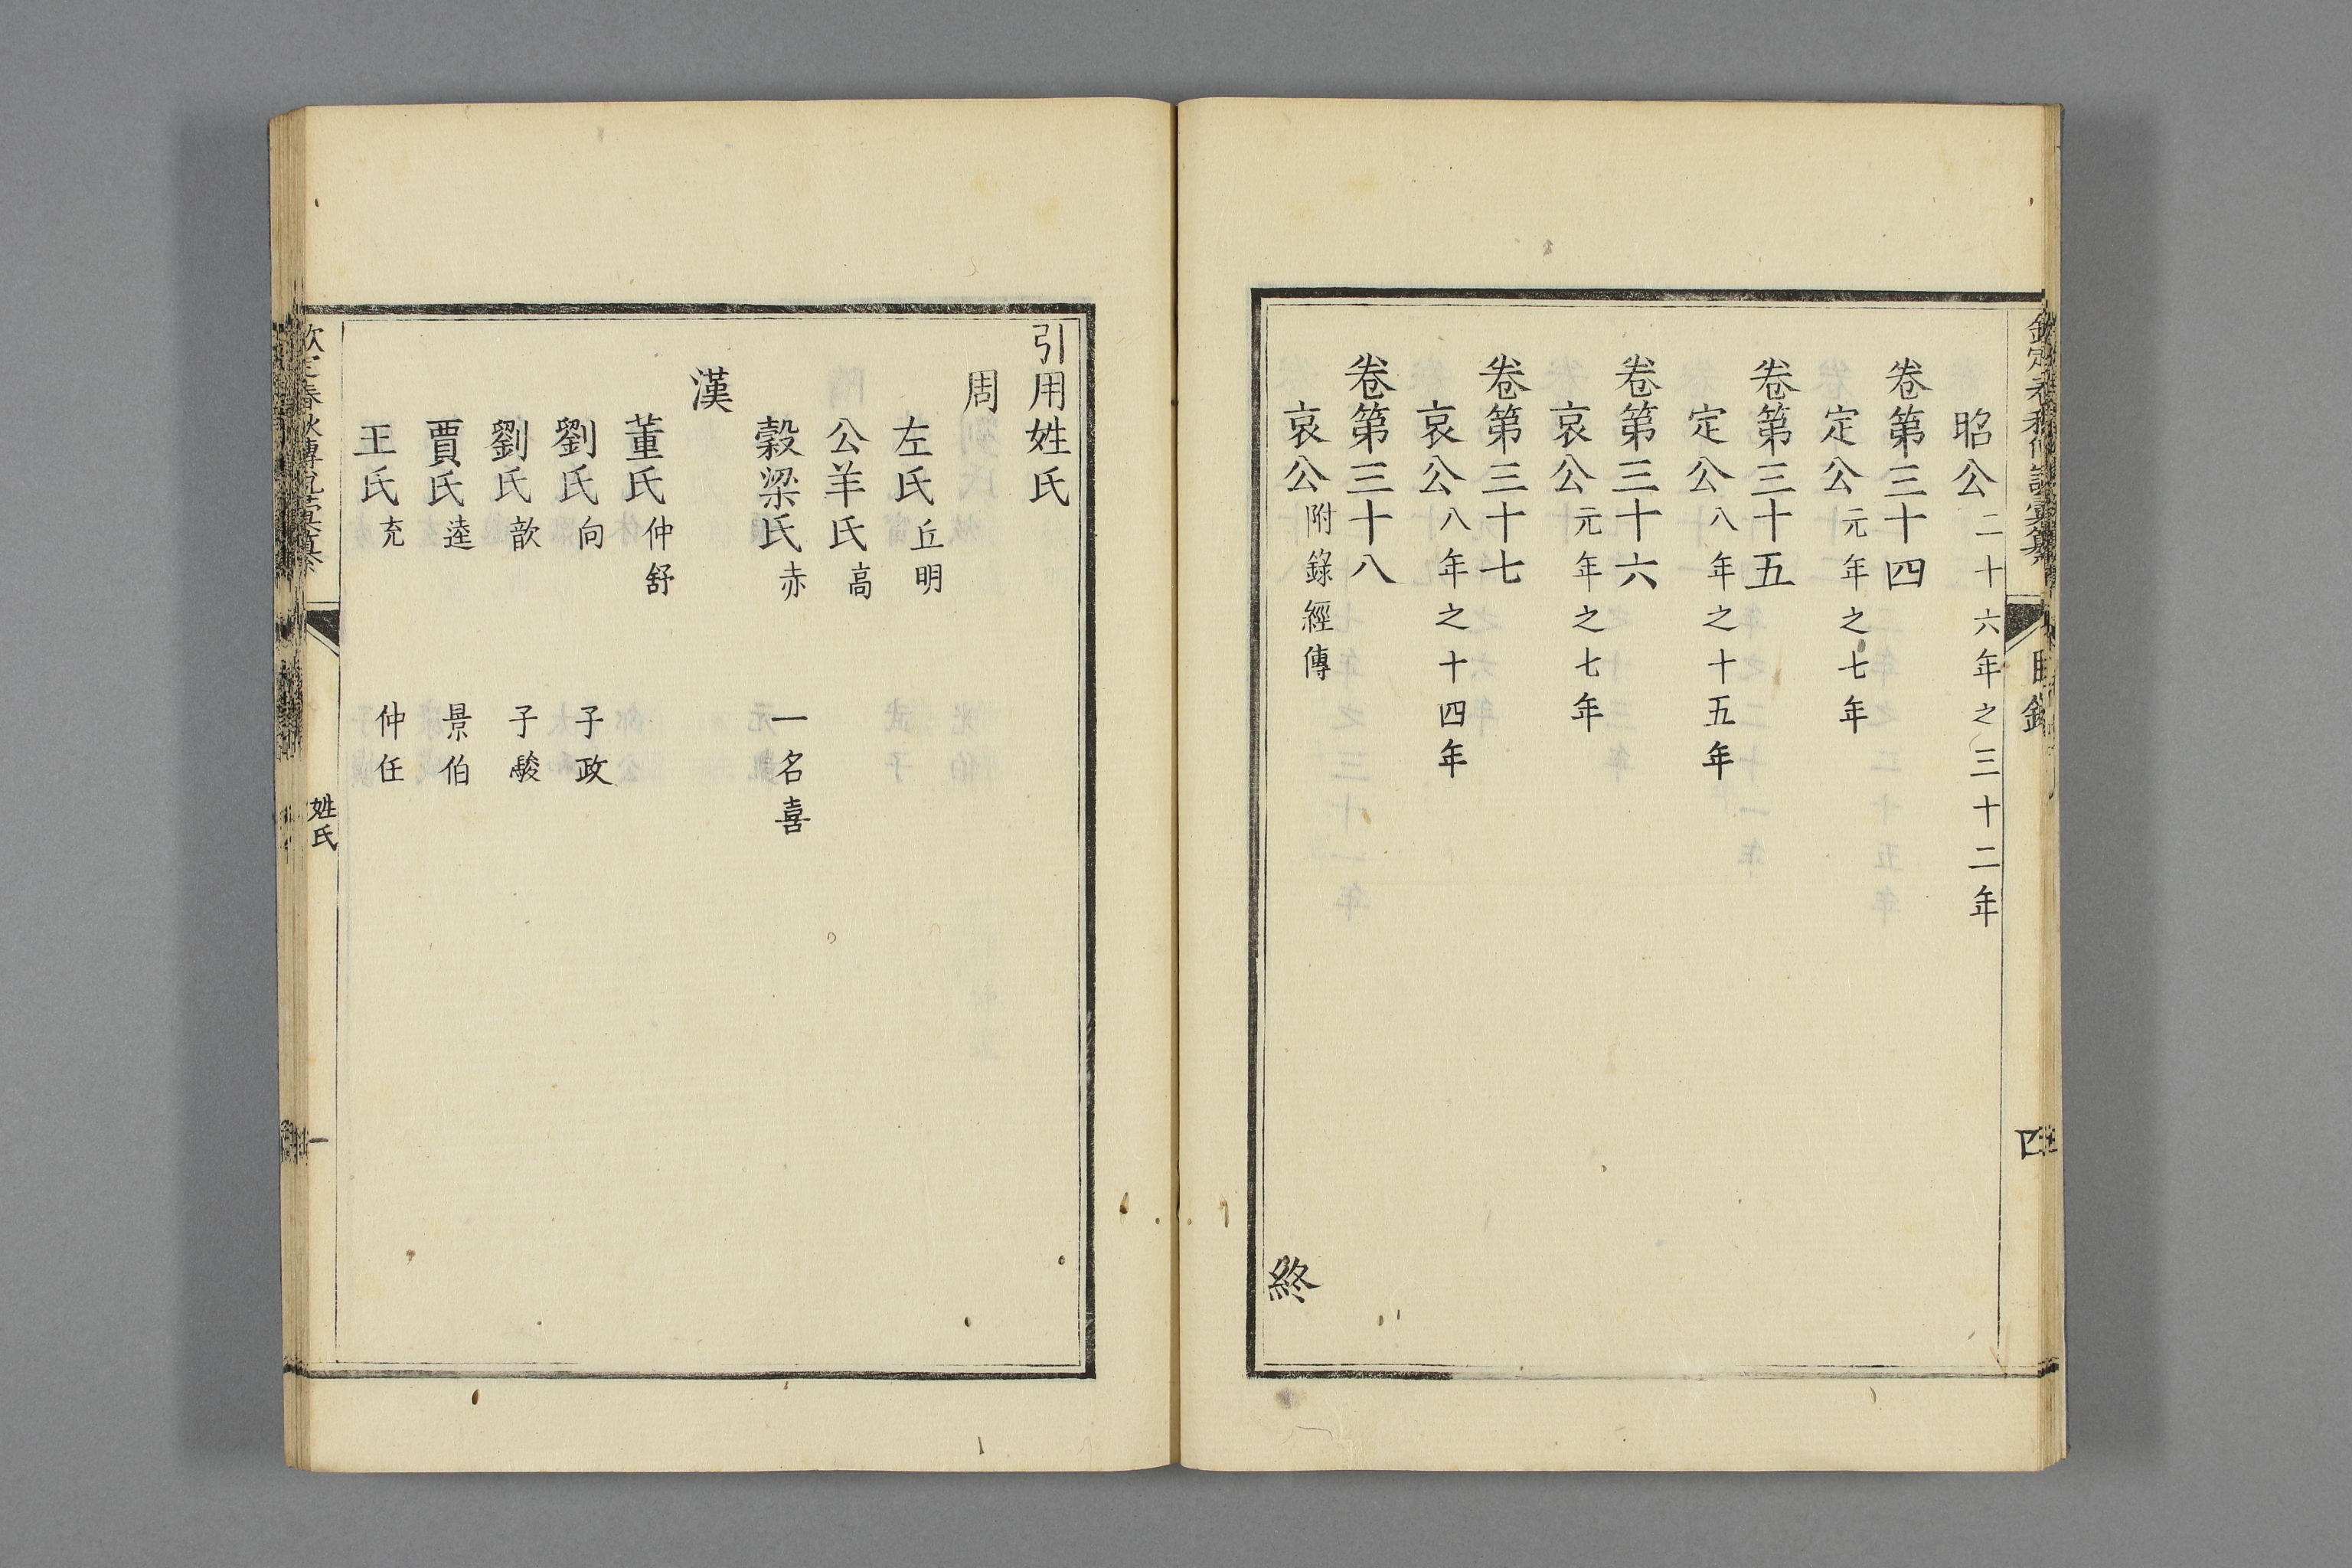 昭公二十六年之三十二年
卷第三十四
定公元年之七年
卷第三十五
定公八年之十五年
卷第三十六
哀公元年之七年
卷第三十七
哀公八年之十四年
卷第三十八
哀公附錄經傳
終
目錄
四
引用姓氏
周
左氏丘明
公羊氏高
穀梁氏赤 一名喜
漢
董氏仲舒
劉氏向 子政
劉氏歆 子駿
賈氏逵 景伯
王氏充 仲任
欽定春秋傳說彙纂
姓氏
一